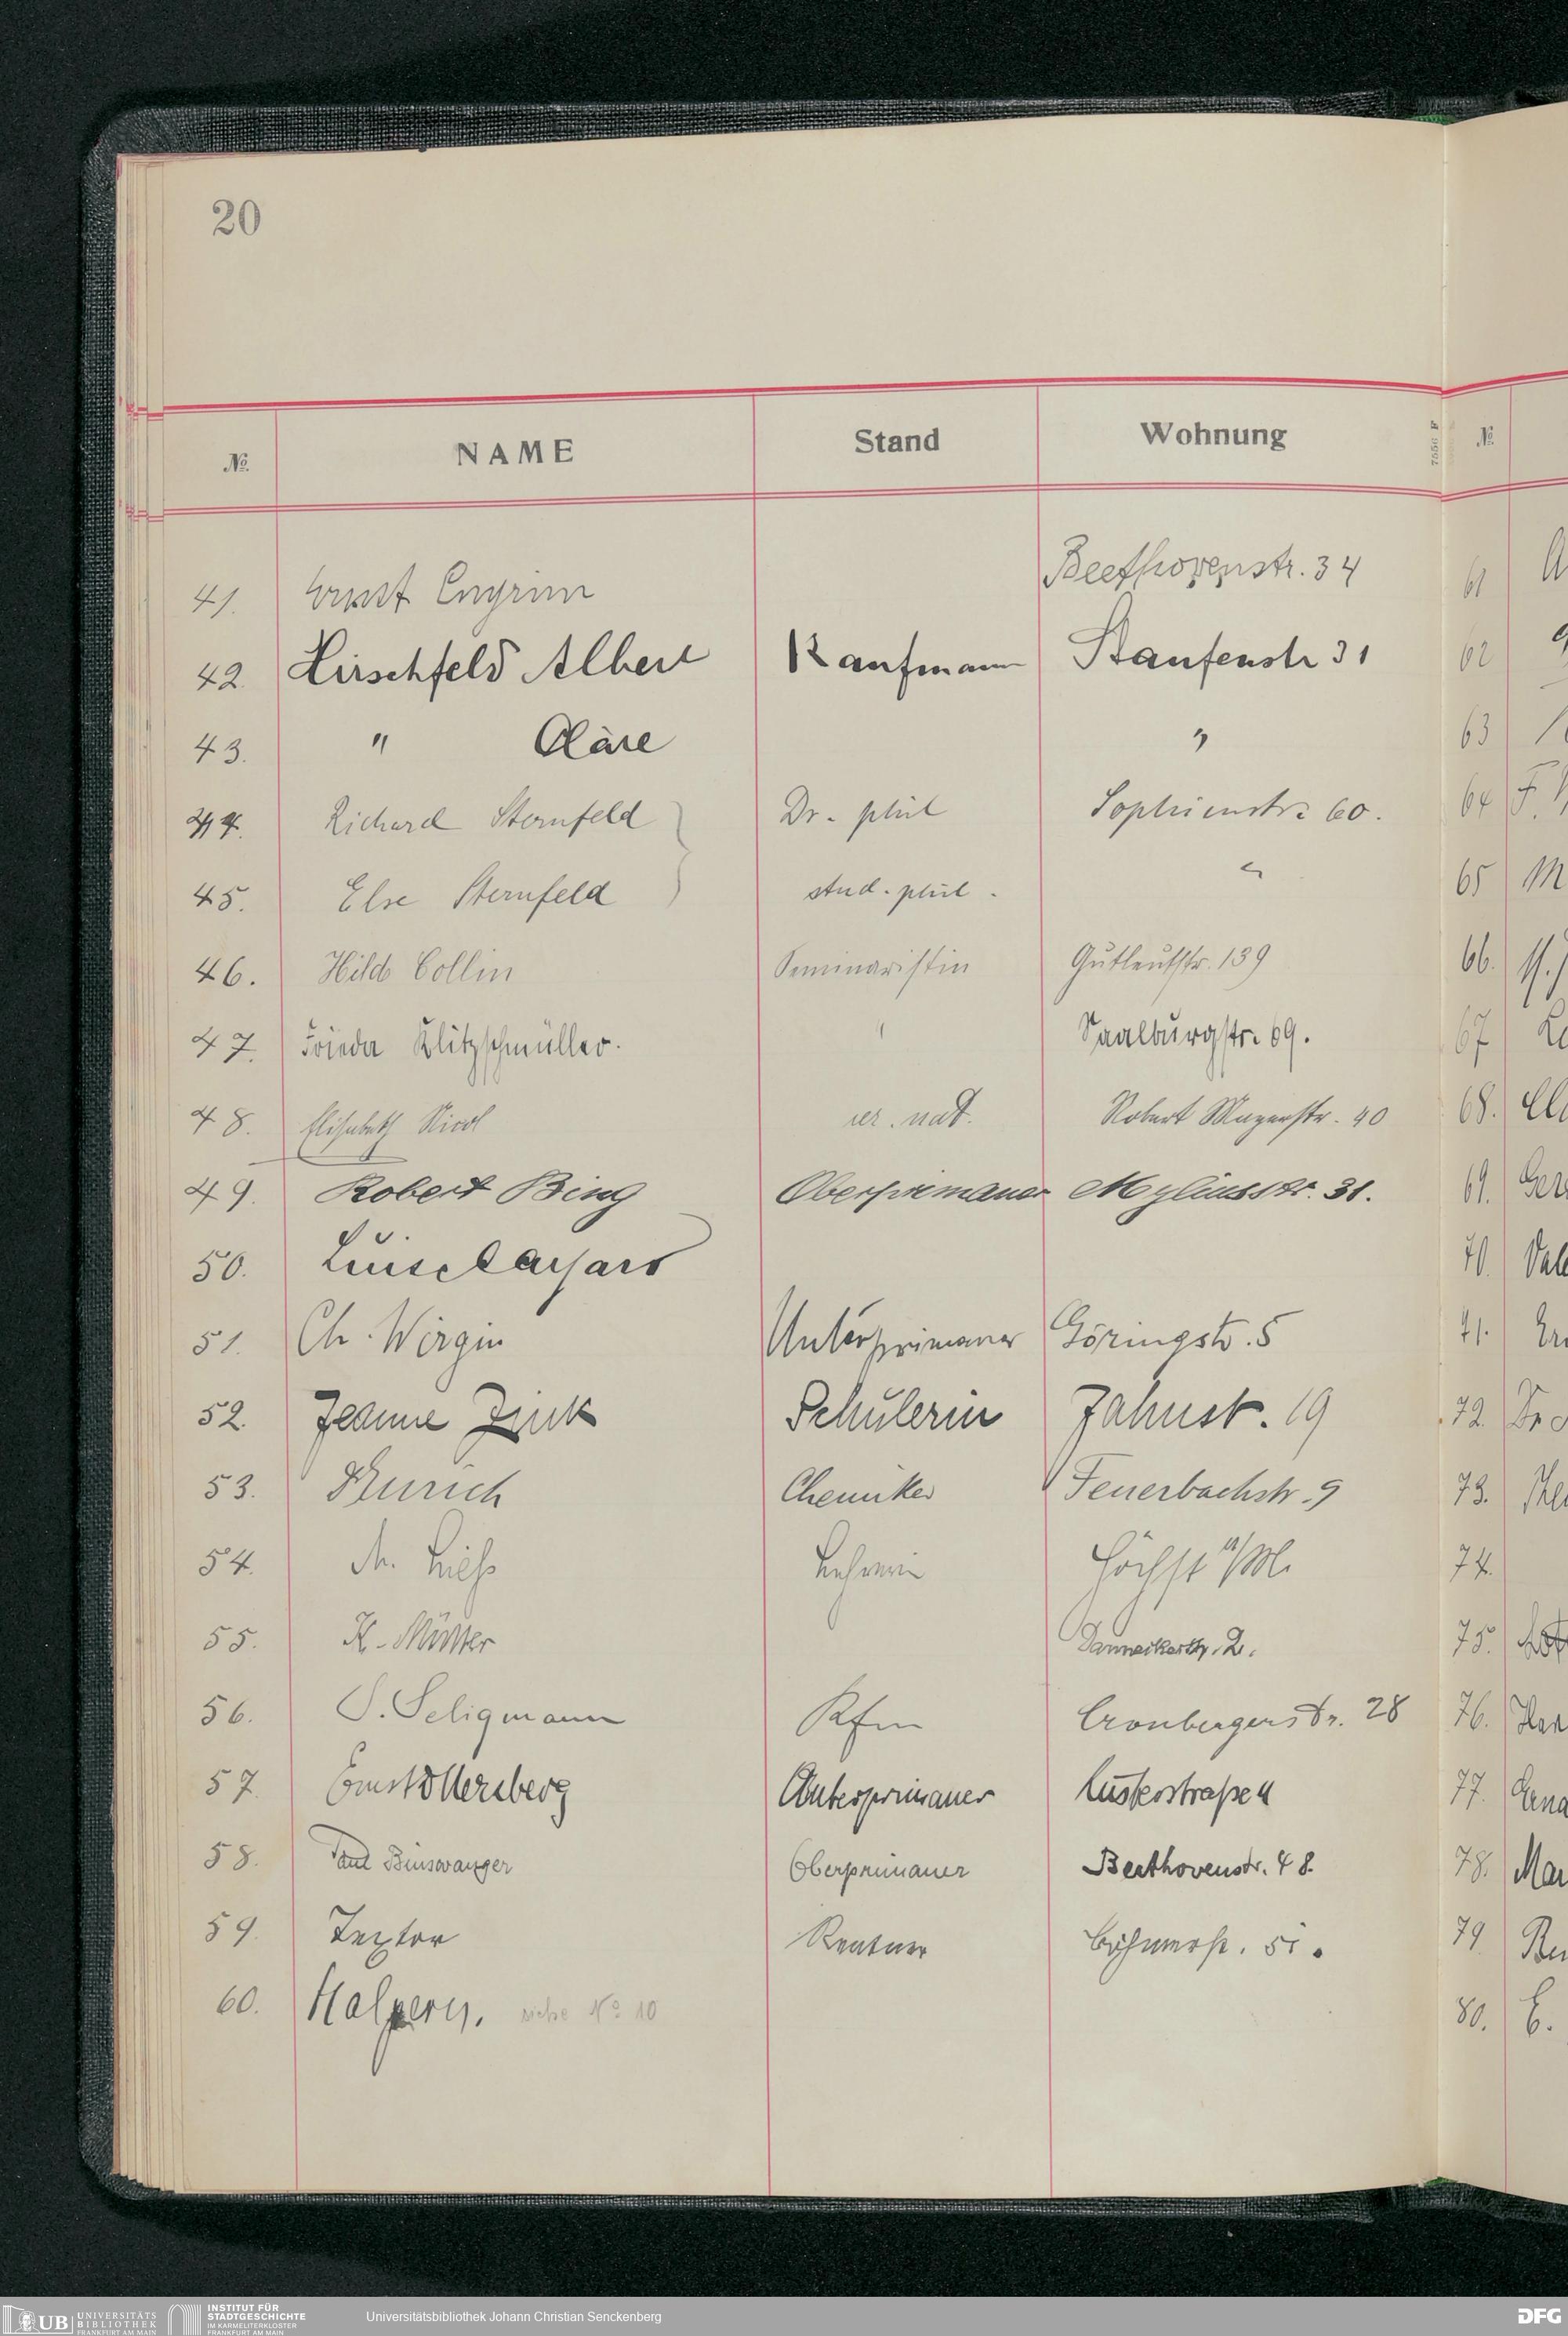 20
№ NAME Stand Wohnung №
41. Ernst Beethovenstr. 34 61
42. Hirschfeld Albert Kaufmann Staufenstr 31 62
43. " Cläre " 63
44. Richard Sternfeld Dr. phil Sophienstr. 60. 64 F.
45. Else Sternfeld stud. phil. " 65 M
46. Hilde Collin Seminaristin Gutleutstr. 139 66.
47. Frieda Klitzschmüller. " Saalburgstr. 69. 67
48. Elisabeth Nicol rer. nat. Robert Mayerstr. 40 68.
49. Robert Bing Oberprimaner Myliusstr. 31. 69. Ger
50. Luise 70.
51. Ch. Wirgin Unterprimaner Göringstr. 5 71.
52. Jeanne Zink Schülerin Jahnstr. 19 72.
53. Chemiker Feuerbachstr. 9 73.
54. Lehrerin Höchst a/M. 74.
55. K. Müller Danneckerstr. 2. 75.
56. S. Seligmann Kfm Cronbergerstr. 28 76.
57. Ernst Unterprimaner 77.
58. Paul Binswanger Oberprimaner Beethovenstr. 48. 78. Mar
59. Textor Rentner Böhmerstr. 51. 79
60. Halpern. siehe No 10 80. E.
7556 F
UB UNIVERSITÄTS
BIBLIOTHEK
FRANKFURT AM MAIN
INSTITUT FÜR
STADTGESCHICHTE
IM KARMELITERKLOSTER
FRANKFURT AM MAIN
Universitätsbibliothek Johann Christian Senckenberg
DFG